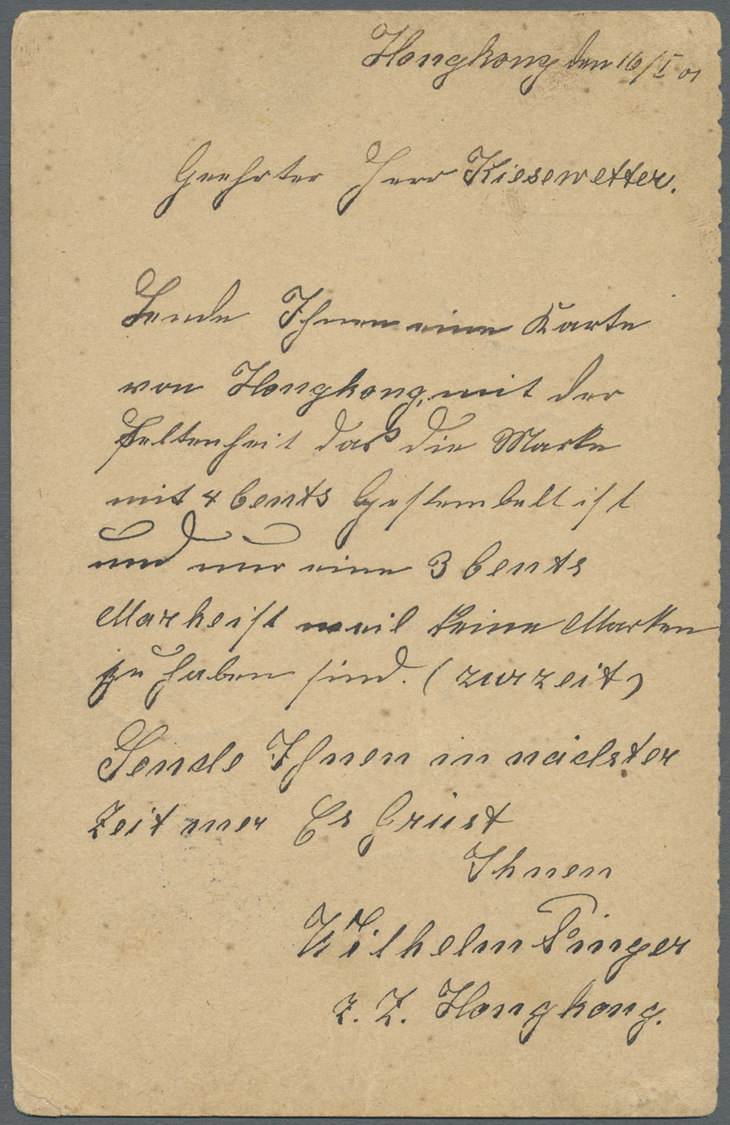 Hongkong den 16/I 01
Geehrter Herr Kiesewetter.
Sende Ihnen eine Karte
von Hongkong, mit der
Seltenheit das die Marke
mit 4 Cents Gestembelt ist
und nur eine 3 Cents
Marke ist weil keine Marken
zu haben sind. (zurzeit)
Sende Ihnen in nächster
Zeit mer Es Grüst
Ihnen
Wilhelm Pinger
z. Z. Hongkong.